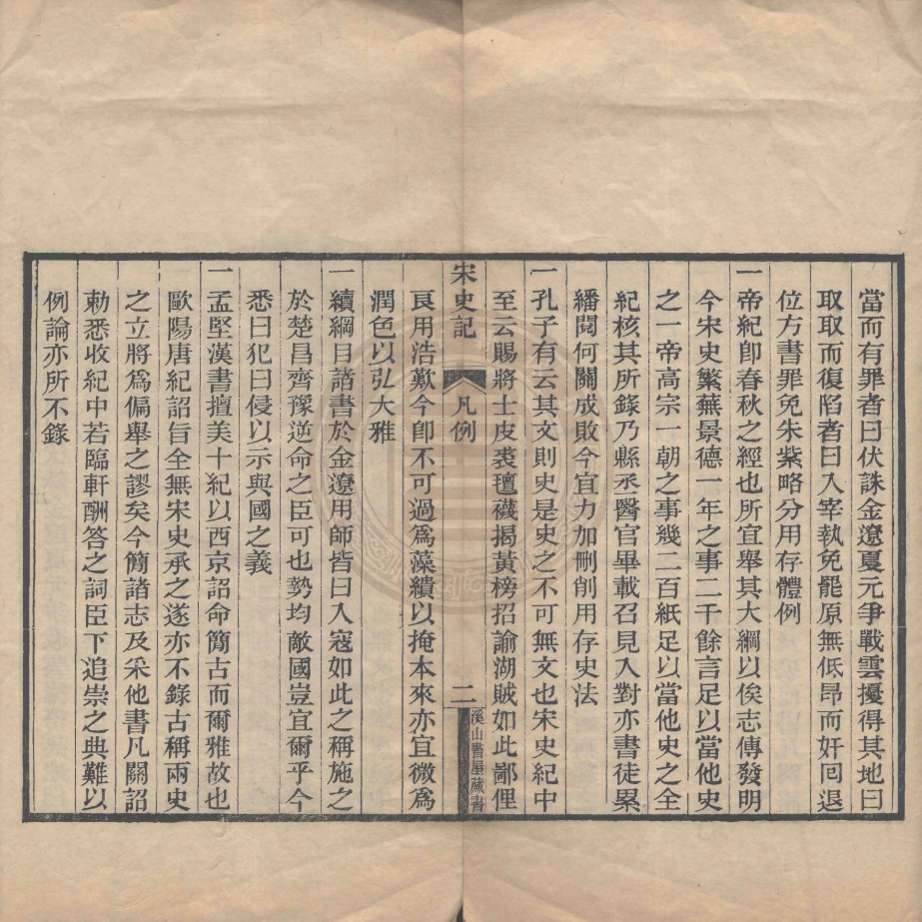 當而有罪者曰伏誅金遼夏元爭戰雲擾得其地曰
取取而復陷者曰入宰執免罷原無低昂而奸囘退
位方書罪免朱紫略分用存體例
一帝紀卽春秋之經也所宜舉其大綱以俟志傳發明
今宋史繁蕪景德一年之事二千餘言足以當他史
之一帝高宗一朝之事幾二百紙足以當他史之全
紀核其所錄乃縣丞醫官畢載召見入對亦書徒累
繙閱何關成敗今宜力加刪削用存史法
一孔子有云其文則史是史之不可無文也宋史紀中
至云賜將士皮裘氊襪揭黃榜招諭湖賊如此鄙俚
宋史記 凡例 二 溪山書屋藏書
良用浩歎今卽不可過爲藻繢以掩本來亦宜微爲
潤色以弘大雅
一續綱目諸書於金遼用師皆曰入寇如此之稱施之
於楚昌齊豫逆命之臣可也勢均敵國豈宜爾乎今
悉曰犯曰侵以示與國之義
一孟堅漢書擅美十紀以西京詔命簡古而爾雅故也
歐陽唐紀詔旨全無宋史承之遂亦不錄古稱兩史
之立將爲偏舉之謬矣今簡諸志及采他書凡關詔
勅悉收紀中若臨軒酬答之詞臣下追崇之典難以
例論亦所不錄